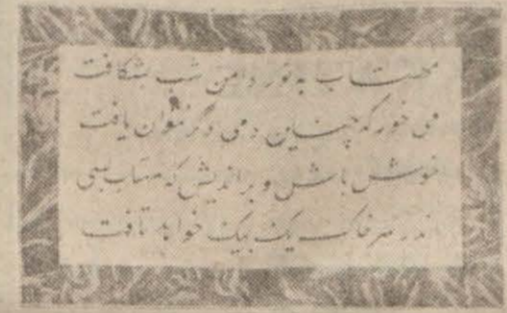 مهتاب به نور دامن شب بشکافت
می خور که چنین دمی دگر نتوان یافت
خوش باش و براندیش که مهتاب بسی
اندر سر خاک یک بیک خواهد تافت